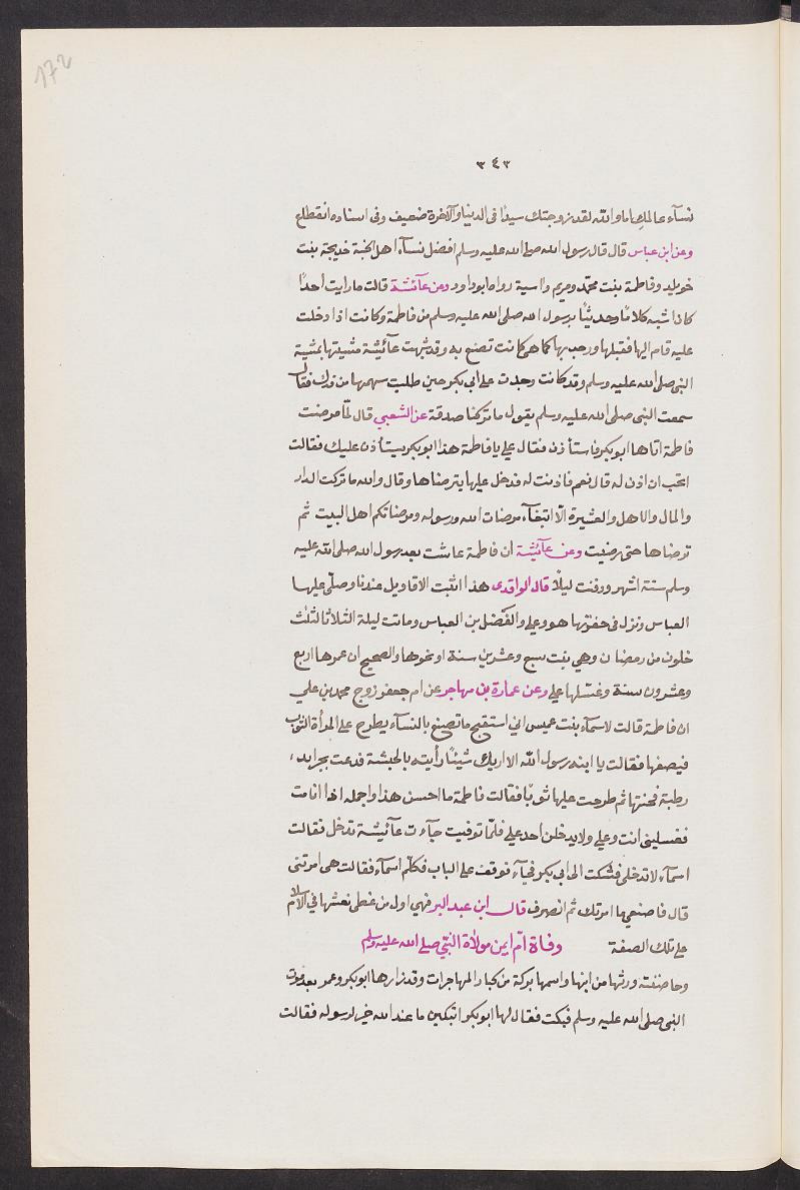 172
٣٤٣
نسآء عالمك اما والله لقد زوجتك سيدًا فى الدنيا والآخرة ضعيف وفى اسناده انقطاع
وعن ابن عباس قال قال رسول الله صلى الله عليه وسلم افضل نسآء اهل الجنة خديجة بنت
خويلد وفاطمة بنت محمّد ومريم واسية رواه ابو داود وعن عآئشة قالت ما رايت احدًا
كان اشبه كلامًا وحديثًا برسول الله صلى الله عليه وسلم من فاطمة وكانت اذا دخلت
عليه قام اليها فقبلها ورحب بها كما هى كانت تصنع به وقد شبهت عآئشة مشيتها بمشية
النبى صلى الله عليه وسلم وقد كانت وجدت على ابى بكر حين طلبت سهمها من فدك فقال
سمعت النبى صلى الله عليه وسلم يقول ما تركنا صدقة عن الشعبي قال لمّا مرضت
فاطمة اتاها ابو بكر فاستأذن فقال علي يا فاطمة هذا ابو بكر يستأذن عليك فقالت
اتحب ان اذن له قال نعم فاذنت له فدخل عليها يترضاها وقال والله ما تركت الدار
والمال والاهل والعشيرة الّا ابتغآء مرضات الله ورسوله ومرضاتكم اهل البيت ثم
ترضاها حتى رضيت وعن عآئشة ان فاطمة عاشت بعد رسول الله صلى الله عليه
وسلم ستة اشهر ودفنت ليلًا قال الواقدى هذا اثبت الاقاويل عندنا وصلّى عليها
العباس ونزل فى حفرتها هو وعلى والفضل بن العباس وماتت ليلة الثلاثا لثلث
خلون من رمضان وهي بنت سبع وعشرين سنة او نحوها والصحيح ان عمرها اربع
وعشرون سنة وغسلها على وعن عمارة بن مهاجر عن ام جعفر زوج محمد بن علي
ان فاطمة قالت لاسمآء بنت عميس اني استقبح ما تصنع بالنسآء يطرح على المرأة الثوب
فيصفها فقالت يا ابنه رسول الله الا اريك شيئًا رأيته بالحبشة فدعت بجرايد
رطبة فحنتها ثم طرحت عليها ثوبًا فقالت فاطمة ما احسن هذا واجمله اذا انا مت
فغسلينى انت وعلي ولا يدخلن احد على فلمّا توفيت جآءت عآئشة تدخل فقالت
اسمآء لا تدخلى فشكت الى ابى بكر فجآء فوقف على الباب فكلّم اسمآء فقالت هى امرتنى
قال فاصنعي ما امرتك ثم انصرف قال ابن عبد البر فهي اول من غطى نعشها في الاسلام
على تلك الصفة وفاة امّ ايمن مولاة النبّي صلى الله عليه وسلم
وحاضنته ورثها من ابيها واسمها بركة من كبار المهاجرات وقد زارها ابو بكر وعمر بعد موت
النبى صلى الله عليه وسلم فبكت فقال لها ابو بكر اتبكين ما عند الله خير لرسوله فقالت